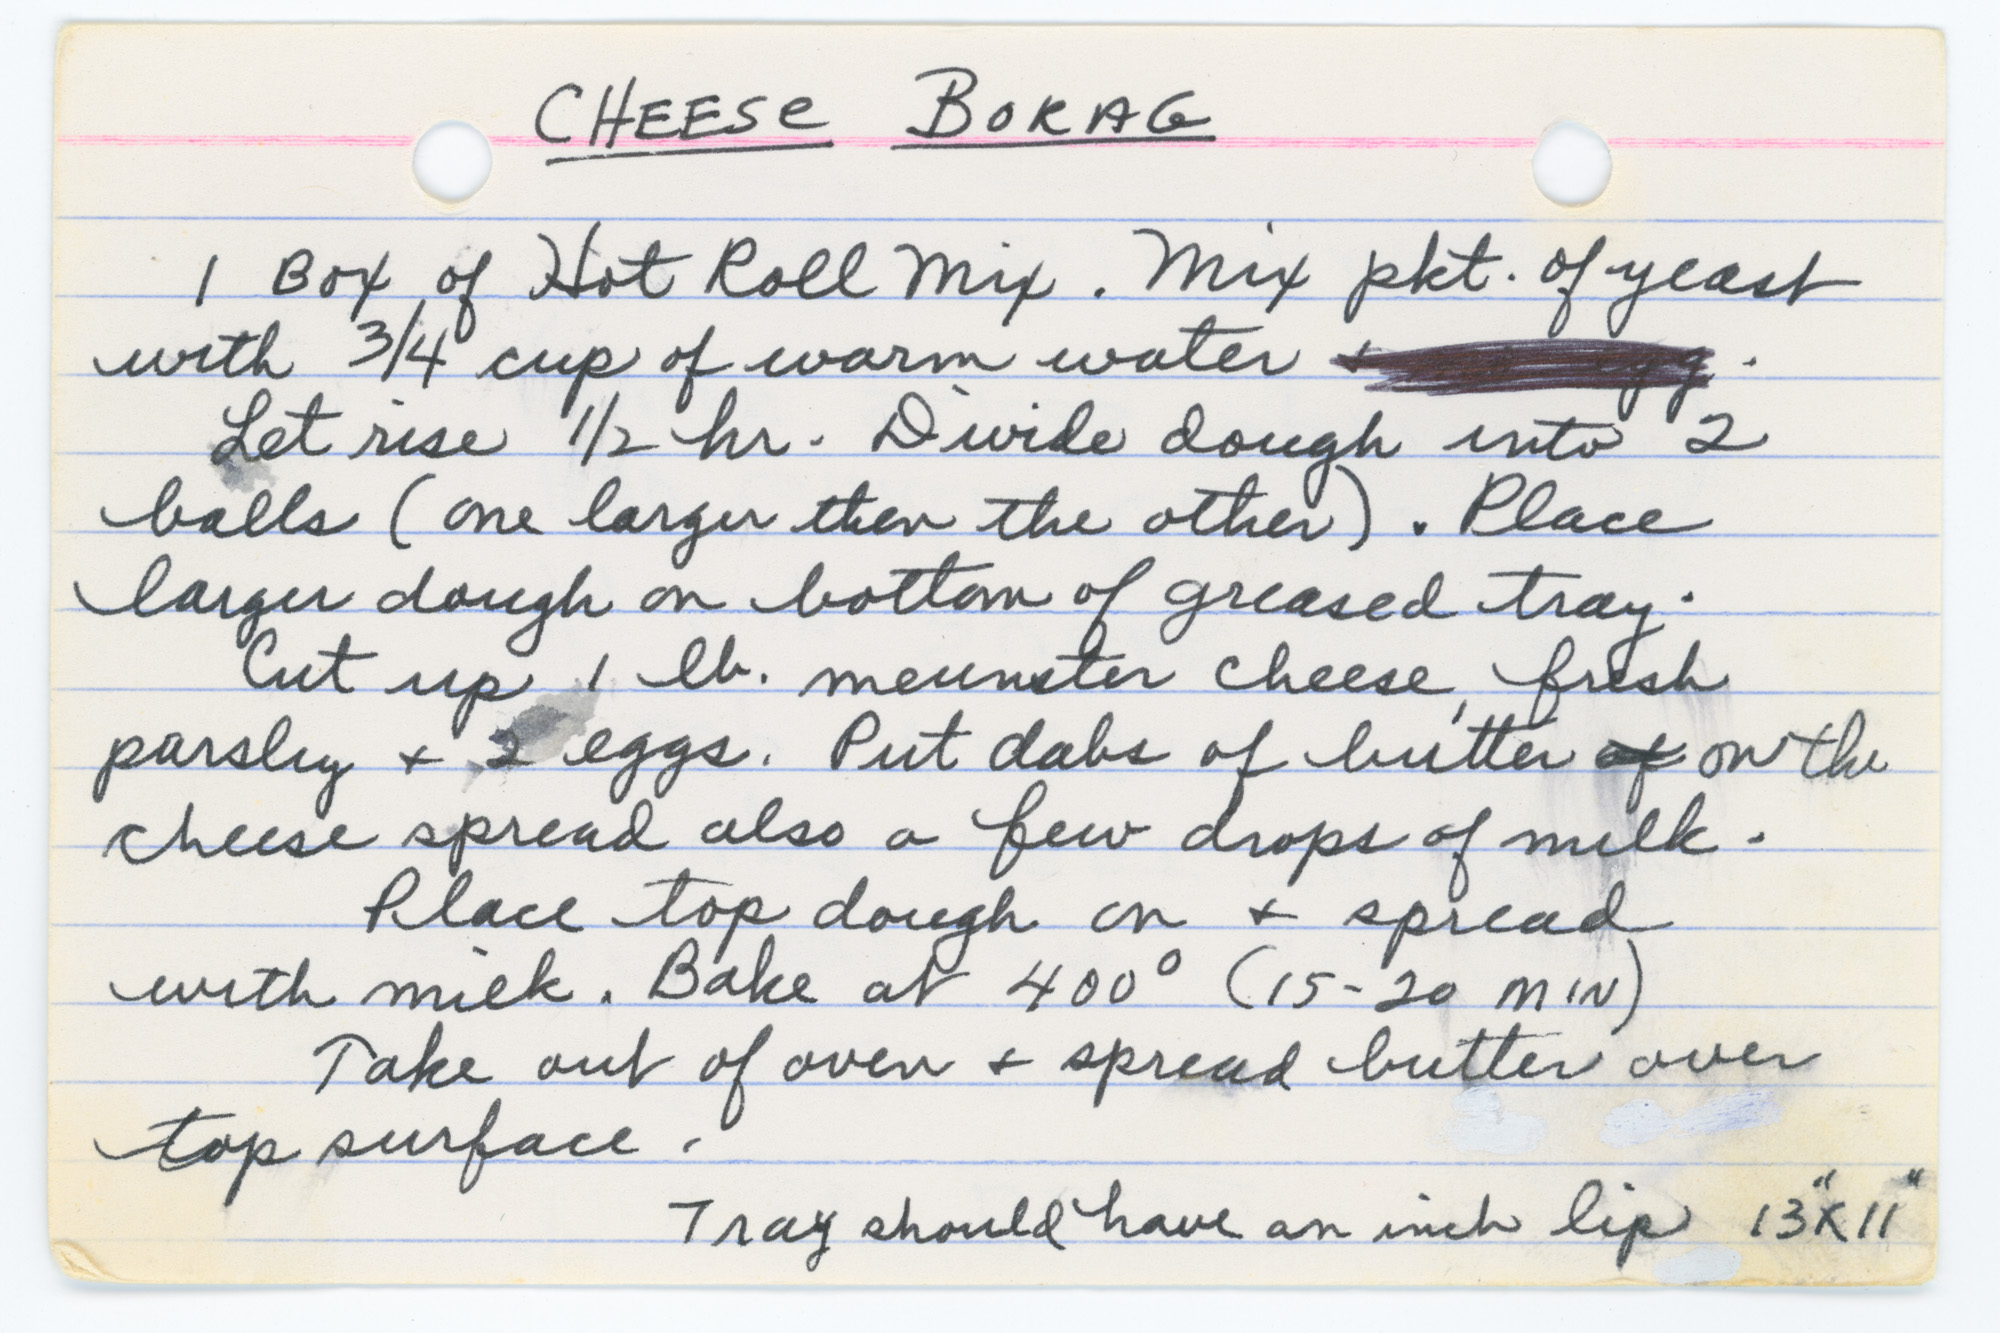 CHEESE BORAG
1 Box of Hot Roll Mix. Mix pkt. of yeast
with 3/4 cup of warm water
Let rise 1/2 hr. Divide dough into 2
balls (one larger then the other). Place
larger dough on bottom of greased tray.
Cut up 1 lb. meunster cheese, fresh
parsley + 2 eggs. Put dabs of butter on the
cheese spread also a few drops of milk.
Place top dough on + spread
with milk. Bake at 400° (15-20 MIN)
Take out of oven + spread butter over
top surface.
Tray should have an inch lip 13" x 11"